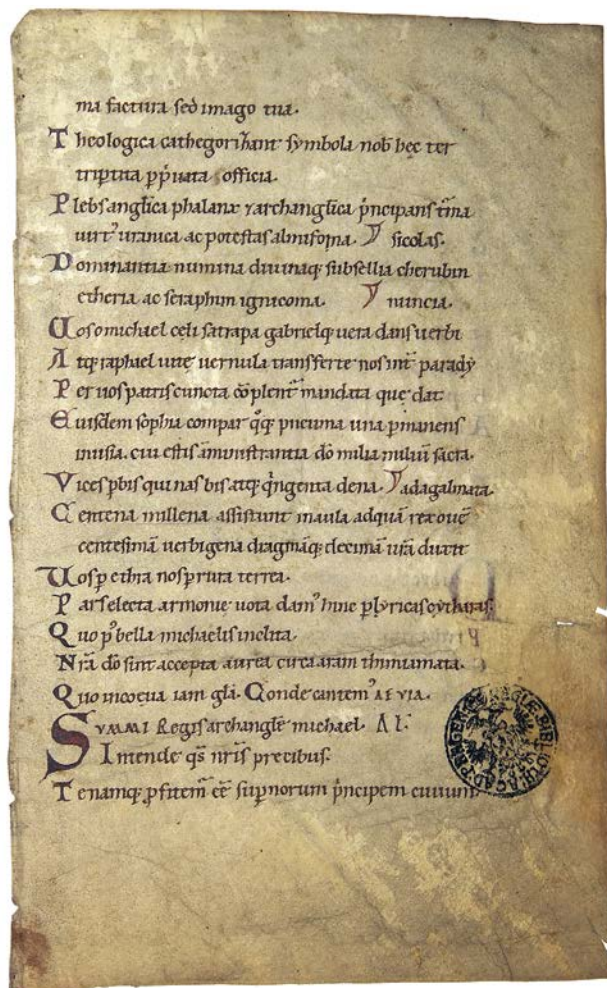 ma factura sed imago tua.
Theologica cathegorizant symbola nob hec ter
triptita p pͥuata officia.
Plebs anglica phalanx ⁊ archanglica pͥncipans tͥma
uirtꝰ uranica ac potestas almifoma. sicolas.
Dominantia numina diuinaq; subsellia cherubin
etheria ac seraphim ignicoma. nuncia.
Uos o michael celi satrapa gabrielq; uera dans uerbi
Atq; raphael uite uernula transferte nos int̄ parady
Per uos patris cuncta cōplent̄ mandata que dat
Eiusdem sophia compar qͦq; pneuma una pmanens
in usia. cui estis āministrantia dō milia miliū sacra.
Vices p bis quinas bis atq; qͥngenta dena.
Centena millena assistunt in aula ad quā rex ouē
centesimā uerbigena dragmāq; decimā urā duxit
Uos p ethra nos p rura terrea.
Pars electa armonie uota damꝰ hinc p lyricas cytharas.
Quo pꝰ bella michaelis inclita.
Nrā dō sint accepta aurea circa aram thimiamata.
Quo in coeua iam glā. Conde cantemꝰ AEVIA.
SUMMI Regis archangle michael. AL.
Intende qs nrīs precibus.
Te namq; pfitem̄ eē supnorum pͥncipem ciuium